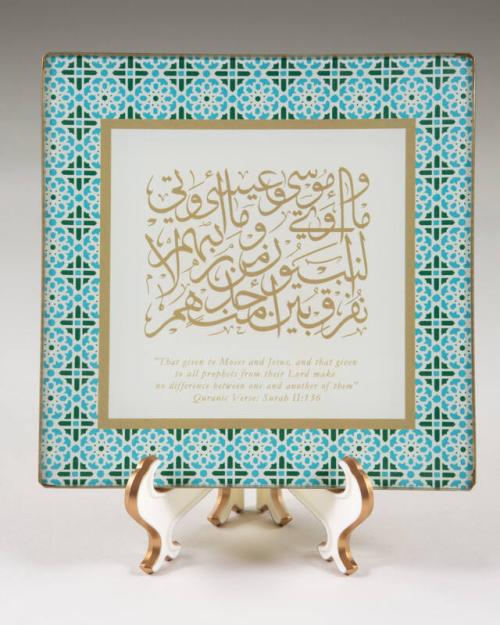 وما أوتي موسى وعيسى وما أوتي
النبيون من ربهم لا
نفرق بين أحد منهم
"That given to Moses and Jesus, and that given
to all prophets from their Lord make
no difference between one and another of them"
Quranic Verse: Surah II:136